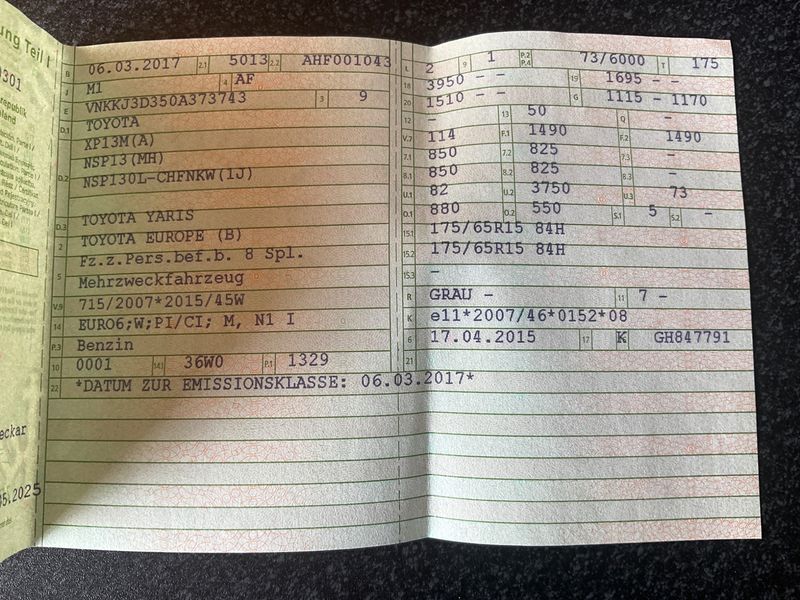 ung Teil I
0301
republik
land
eckar
05.2025
B 06.03.2017 2.1 5013 2.2 AHF001043
J M1 4 AF
E VNKKJ3D350A373743 3 9
D.1 TOYOTA
XP13M(A)
D.2 NSP13(MH)
NSP130L-CHFNKW(1J)
D.3 TOYOTA YARIS
2 TOYOTA EUROPE (B)
5 Fz.z.Pers.bef.b. 8 Spl.
Mehrzweckfahrzeug
V.9 715/2007*2015/45W
14 EURO6;W;PI/CI; M, N1 I
P.3 Benzin
10 0001 14.1 36W0 P.1 1329
22 *DATUM ZUR EMISSIONSKLASSE: 06.03.2017*
L 2 9 1 P.2 P.4 73/6000 T 175
18 3950 - - 19 1695 - -
20 1510 - - G 1115 - 1170
12 - 13 50 Q -
V.7 114 F.1 1490 F.2 1490
7.1 850 7.2 825 7.3 -
8.1 850 8.2 825 8.3 -
U.1 82 U.2 3750 U.3 73
O.1 880 O.2 550 S.1 5 S.2 -
15.1 175/65R15 84H
15.2 175/65R15 84H
15.3 -
R GRAU - 11 7 -
K e11*2007/46*0152*08
6 17.04.2015 17 K 16 GH847791
21